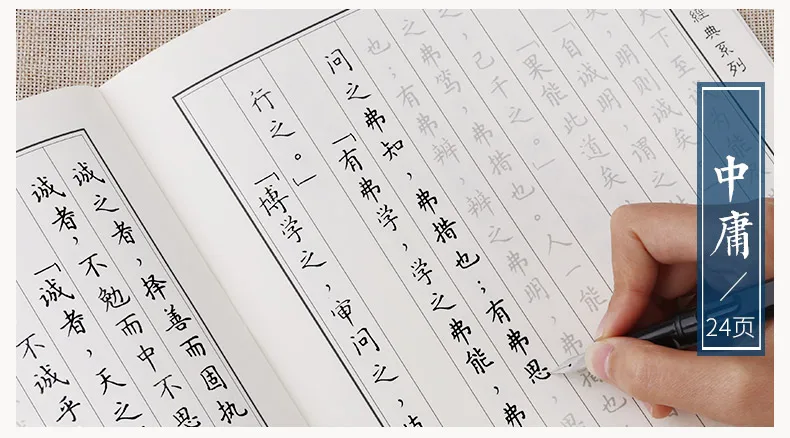 不诚乎
「诚者，天之
诚者，不勉而中不思
诚之者，择善而固执
「博学之，审问之，
行之。」
「有弗学，学之弗能，弗
问之弗知，弗措也；有弗思
也；有弗辨，辨之弗明，弗措
之弗笃，弗措也。人一能
己千之。」
「果能此道矣
「自诚明，谓之
矣，明则诚矣
天下至诚
經典系列
中庸
24页